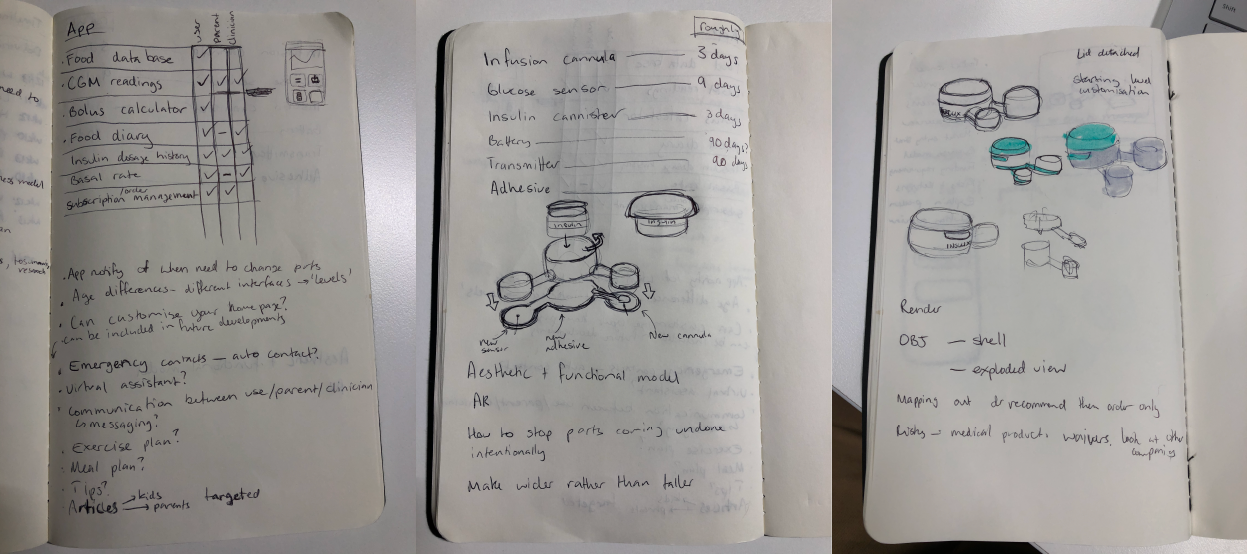 App
user parent clinician
• Food data base
• CGM readings
• Bolus calculator
• Food diary
Insulin dosage history
Basal rate
subscription/order management
• App notify of when need to change parts
• Age differences - different interfaces → 'levels'
• Can customise your homepage?
can be included in future developments
• Emergency contacts — auto contact?
• Virtual assistant?
• Communication between use/parent/clinician
↳ messaging?
• Exercise plan?
• Meal plan?
• Tips?
Articles → kids targeted
→ parents
roughly
Infusion cannula — 3 days
Glucose sensor — 9 days
Insulin cannister — 3 days
Battery — 90 days?
Transmitter — 90 days
Adhesive
insulin
insulin
new sensor
new adhesive
New cannula
Aesthetic + functional model
AR
How to stop parts coming undone
intentionally
Make wider rather than taller
Lid detached
level
customisation
Render
OBJ — shell
— exploded view
Mapping out dr recommend then order only
Risky → medical products, waivers, look at other
companies